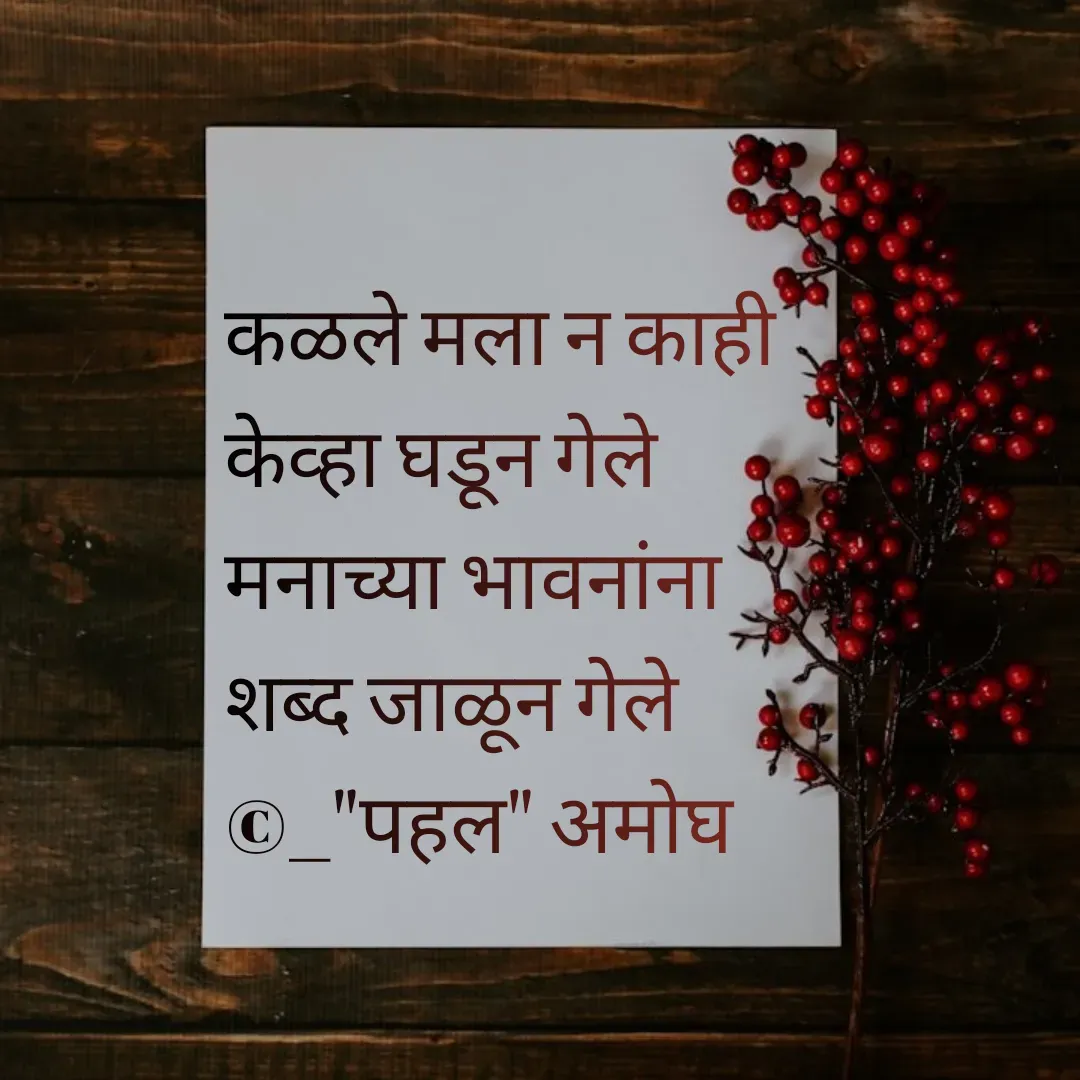 कळले मला न काही
केव्हा घडून गेले
मनाच्या भावनांना
शब्द जाळून गेले
©_"पहल" अमोघ